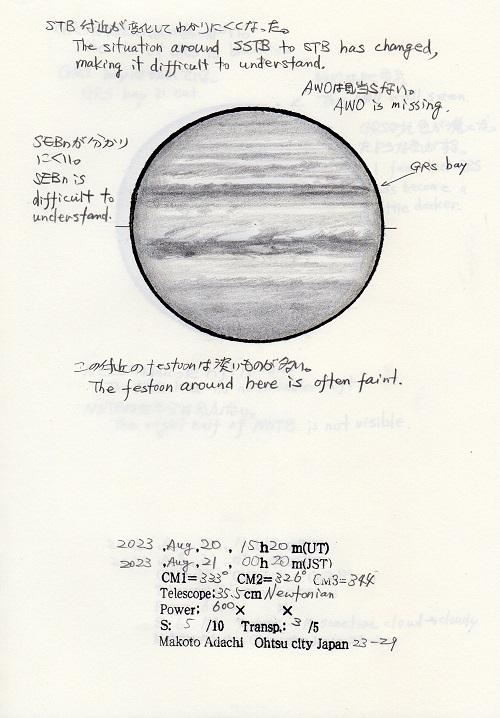 STB付近が変化してわかりにくくなった。
The situation around SSTB to STB has changed,
making it difficult to understand.
AWOは見当らない。
AWO is missing.
SEBnが分かり
にくい。
SEBn is
difficult to
understand.
GRS bay
この付近のfestoonは淡いものが多い。
The festoon around here is often faint.
2023 ,Aug,20 , 15h20m(UT)
2023 ,Aug,21 , 00h20m(JST)
CM1=333° CM2=326° CM3=344
Telescope:35.5cm Newtonian
Power: 600× ×
S: 5 /10 Transp.: 3 /5
Makoto Adachi Ohtsu city Japan 23-29